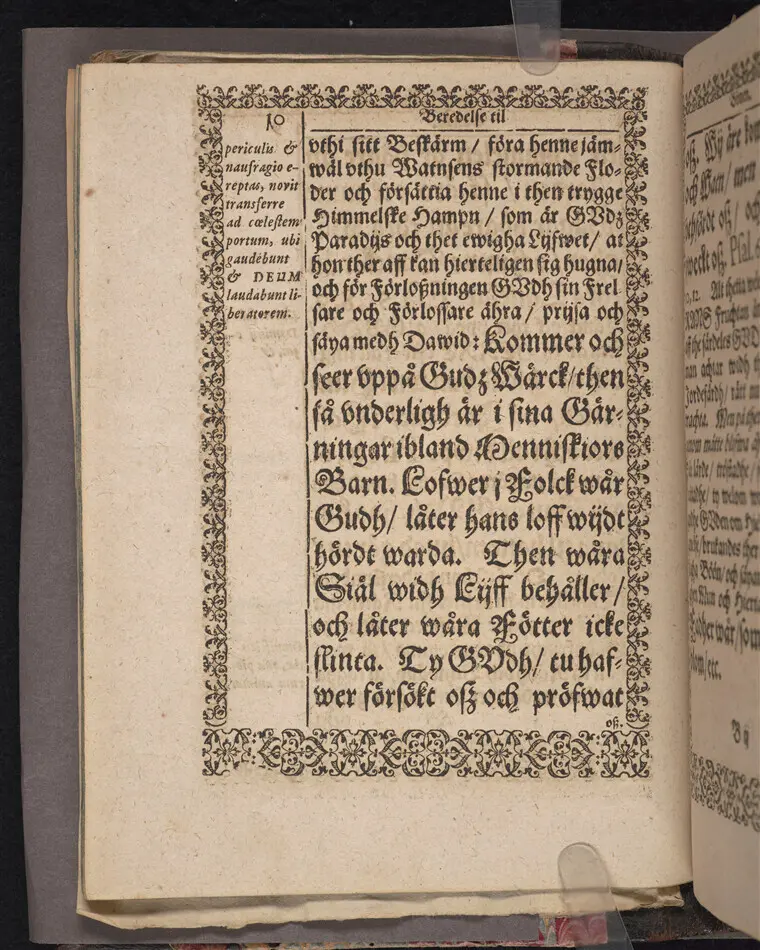 10
Beredelse til
periculis &
naufragio e-
reptas, norit
transferre
ad cœlestem
portum, ubi
gaudebunt
& DEUM
laudabunt li-
beratorem.
vthi sitt Beskärm / föra henne jäm-
wäl vthu Watnsens stormande Flo-
der och försättia henne i then trygge
Himmelske Hampn / som är GVdz
Paradijs och thet ewigha Lijfwet / at
hon ther aff kan hierteligen sig hugna /
och för Förloßningen GVdh sin Frel
sare och Förlossare ähra / prijsa och
säya medh Dawid: Kommer och
seer vppå Gudz Wärck / then
så vnderligh är i sina Gär-
ningar ibland Menniskiors
Barn. Lofwer j Folck wår
Gudh / låter hans loff wijdt
hördt warda. Then wåra
Siäl widh Lijff behåller /
och låter wåra Fötter icke
slinta. Ty GVdh / tu haf-
wer försökt oß och pröfwat
oß.
Wij äre kom
och Wan / men
weckt oß. Psal.
Alt thetta
Fruchtan
achtar widh
rätt
Men på
måtte blifwa
om
brukandes ther
Böön / och
Mun och Hierta
wår / som
etc.
By